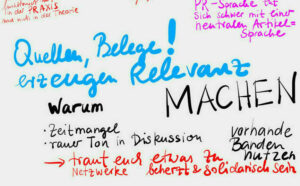 in der PRAXIS
und nicht in der Theorie
PR-Sprache tut
sich schwer mit einer
neutralen Artikel=
Sprache
Quellen, Belege!
erzeugen Relevanz
Warum
MACHEN
· Zeitmangel
· rauer Ton in Diskussion
vorhande
Banden
nutzen
→ traut euch etwas zu
Netzwerke
beherzt & solidarisch sein